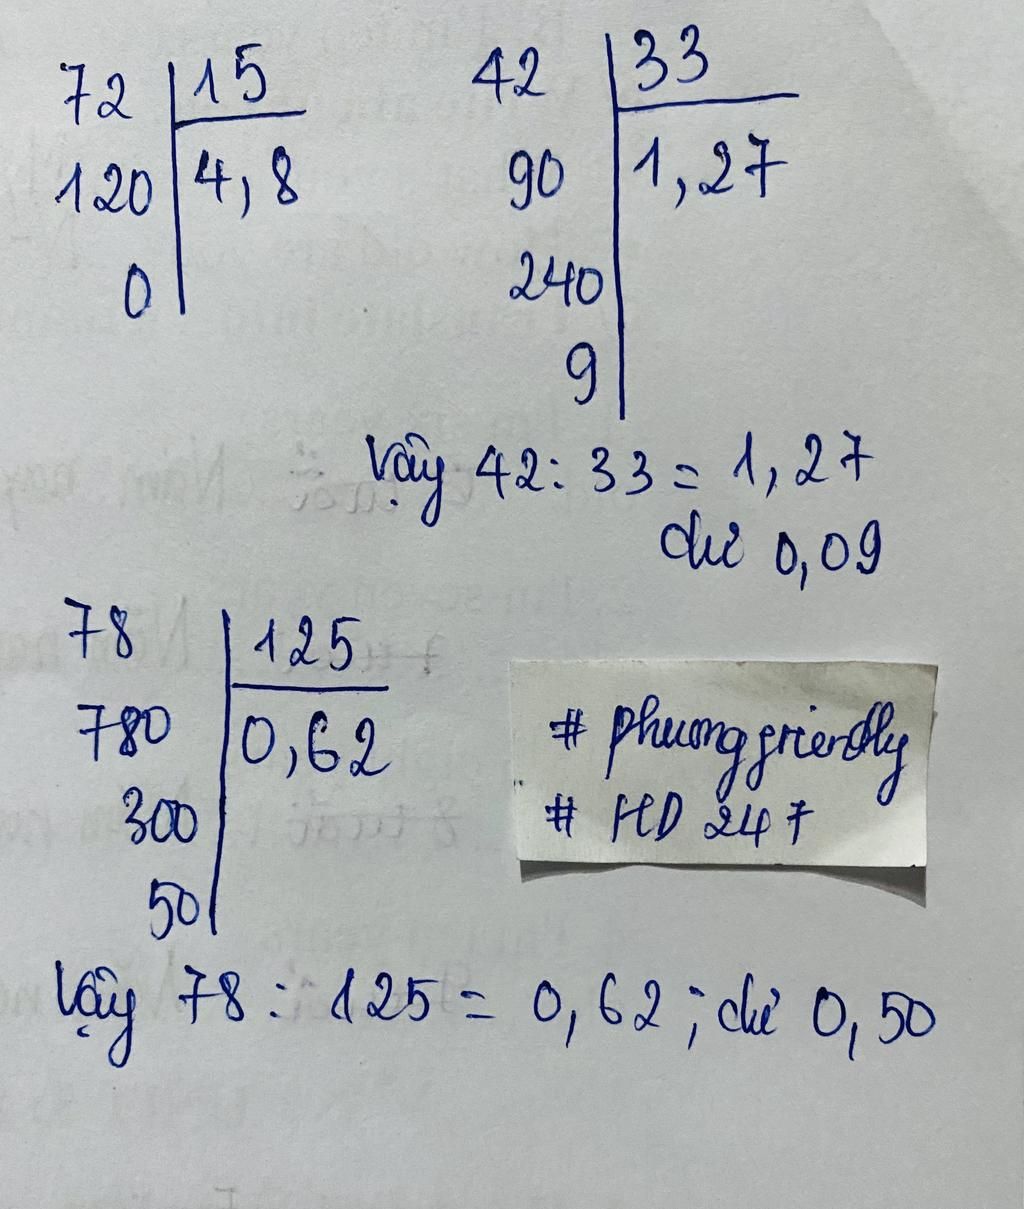 72 15
120 4,8
0
42 33
90 1,27
240
9
Vậy 42: 33 = 1, 27
dư 0,09
78 125
780 0,62
300
50
# phuonggriendly
# HD 247
Vậy 78 : 125 = 0, 62 ; dư 0, 50